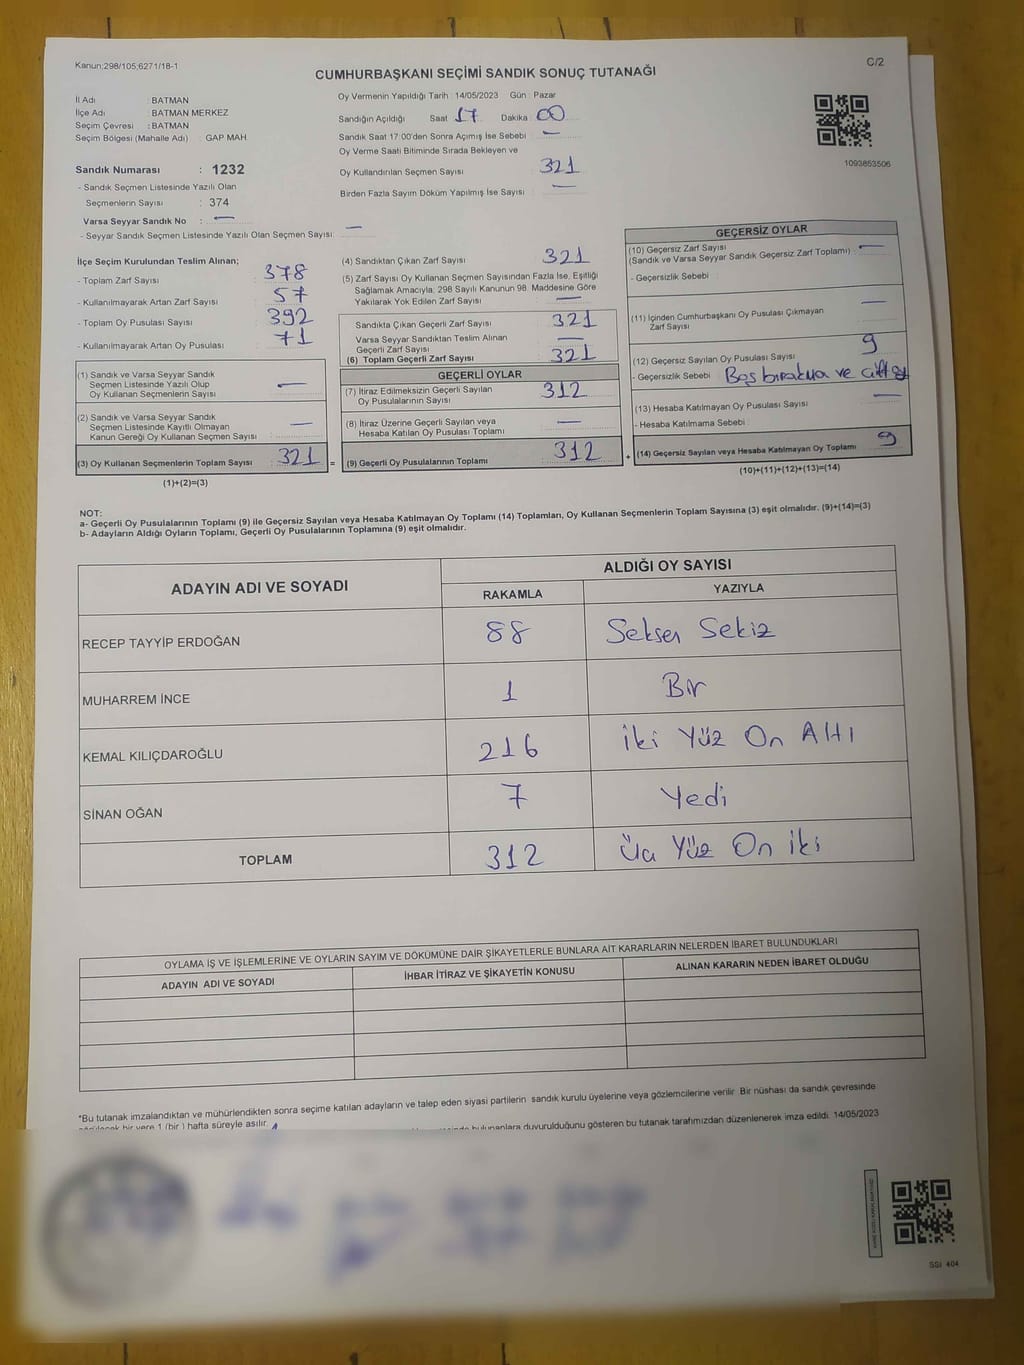 Kanun:298/105;6271/18-1
C/2
CUMHURBAŞKANI SEÇİMİ SANDIK SONUÇ TUTANAĞI
İl Adı : BATMAN
İlçe Adı : BATMAN MERKEZ
Seçim Çevresi : BATMAN
Seçim Bölgesi (Mahalle Adı) : GAP MAH.
Sandık Numarası : 1232
- Sandık Seçmen Listesinde Yazılı Olan
Seçmenlerin Sayısı : 374
Varsa Seyyar Sandık No : —
- Seyyar Sandık Seçmen Listesinde Yazılı Olan Seçmen Sayısı: —
Oy Vermenin Yapıldığı Tarih : 14/05/2023 Gün : Pazar
Sandığın Açıldığı Saat 17 Dakika : 00
Sandık Saat 17:00'den Sonra Açımış İse Sebebi : —
Oy Verme Saati Bitiminde Sırada Bekleyen ve
Oy Kullandırılan Seçmen Sayısı : 321
Birden Fazla Sayım Döküm Yapılmış İse Sayısı : —
1093853506
İlçe Seçim Kurulundan Teslim Alınan;
- Toplam Zarf Sayısı : 378
- Kullanılmayarak Artan Zarf Sayısı : 57
- Toplam Oy Pusulası Sayısı : 392
- Kullanılmayarak Artan Oy Pusulası : 71
(1) Sandık ve Varsa Seyyar Sandık
Seçmen Listesinde Yazılı Olup
Oy Kullanan Seçmenlerin Sayısı : —
(2) Sandık ve Varsa Seyyar Sandık
Seçmen Listesinde Kayıtlı Olmayan
Kanun Gereği Oy Kullanan Seçmen Sayısı : —
(3) Oy Kullanan Seçmenlerin Toplam Sayısı : 321 =
(1)+(2)=(3)
(4) Sandıktan Çıkan Zarf Sayısı : 321
(5) Zarf Sayısı Oy Kullanan Seçmen Sayısından Fazla İse, Eşitliği
Sağlamak Amacıyla, 298 Sayılı Kanunun 98. Maddesine Göre
Yakılarak Yok Edilen Zarf Sayısı : —
Sandıkta Çıkan Geçerli Zarf Sayısı : 321
Varsa Seyyar Sandıktan Teslim Alınan
Geçerli Zarf Sayısı : —
(6) Toplam Geçerli Zarf Sayısı : 321
GEÇERLİ OYLAR
(7) İtiraz Edilmeksizin Geçerli Sayılan
Oy Pusulalarının Sayısı : 312
(8) İtiraz Üzerine Geçerli Sayılan veya
Hesaba Katılan Oy Pusulası Toplamı : —
(9) Geçerli Oy Pusulalarının Toplamı : 312 +
GEÇERSİZ OYLAR
(10) Geçersiz Zarf Sayısı
(Sandık ve Varsa Seyyar Sandık Geçersiz Zarf Toplamı) : —
- Geçersizlik Sebebi :
(11) İçinden Cumhurbaşkanı Oy Pusulası Çıkmayan
Zarf Sayısı : —
(12) Geçersiz Sayılan Oy Pusulası Sayısı : 9
- Geçersizlik Sebebi : Boş bırakma ve çift oy
(13) Hesaba Katılmayan Oy Pusulası Sayısı : —
- Hesaba Katılmama Sebebi :
(14) Geçersiz Sayılan veya Hesaba Katılmayan Oy Toplamı : 9
(10)+(11)+(12)+(13)=(14)
NOT:
a- Geçerli Oy Pusulalarının Toplamı (9) ile Geçersiz Sayılan veya Hesaba Katılmayan Oy Toplamı (14) Toplamları, Oy Kullanan Seçmenlerin Toplam Sayısına (3) eşit olmalıdır. (9)+(14)=(3)
b- Adayların Aldığı Oyların Toplamı, Geçerli Oy Pusulalarının Toplamına (9) eşit olmalıdır.
ADAYIN ADI VE SOYADI
ALDIĞI OY SAYISI
RAKAMLA YAZIYLA
RECEP TAYYİP ERDOĞAN 88 Seksen Sekiz
MUHARREM İNCE 1 Bir
KEMAL KILIÇDAROĞLU 216 İki Yüz On Altı
SİNAN OĞAN 7 Yedi
TOPLAM 312 Üç Yüz On İki
OYLAMA İŞ VE İŞLEMLERİNE VE OYLARIN SAYIM VE DÖKÜMÜNE DAİR ŞİKAYETLERLE BUNLARA AİT KARARLARIN NELERDEN İBARET BULUNDUKLARI
ADAYIN ADI VE SOYADI İHBAR İTİRAZ VE ŞİKAYETİN KONUSU ALINAN KARARIN NEDEN İBARET OLDUĞU
*Bu tutanak imzalandıktan ve mühürlendikten sonra seçime katılan adayların ve talep eden siyasi partilerin sandık kurulu üyelerine veya gözlemcilerine verilir. Bir nüshası da sandık çevresinde
görülecek bir yere 1 (bir) hafta süreyle asılır. bulunanlara duyurulduğunu gösteren bu tutanak tarafımızdan düzenlenerek imza edildi. 14/05/2023
SSI 404